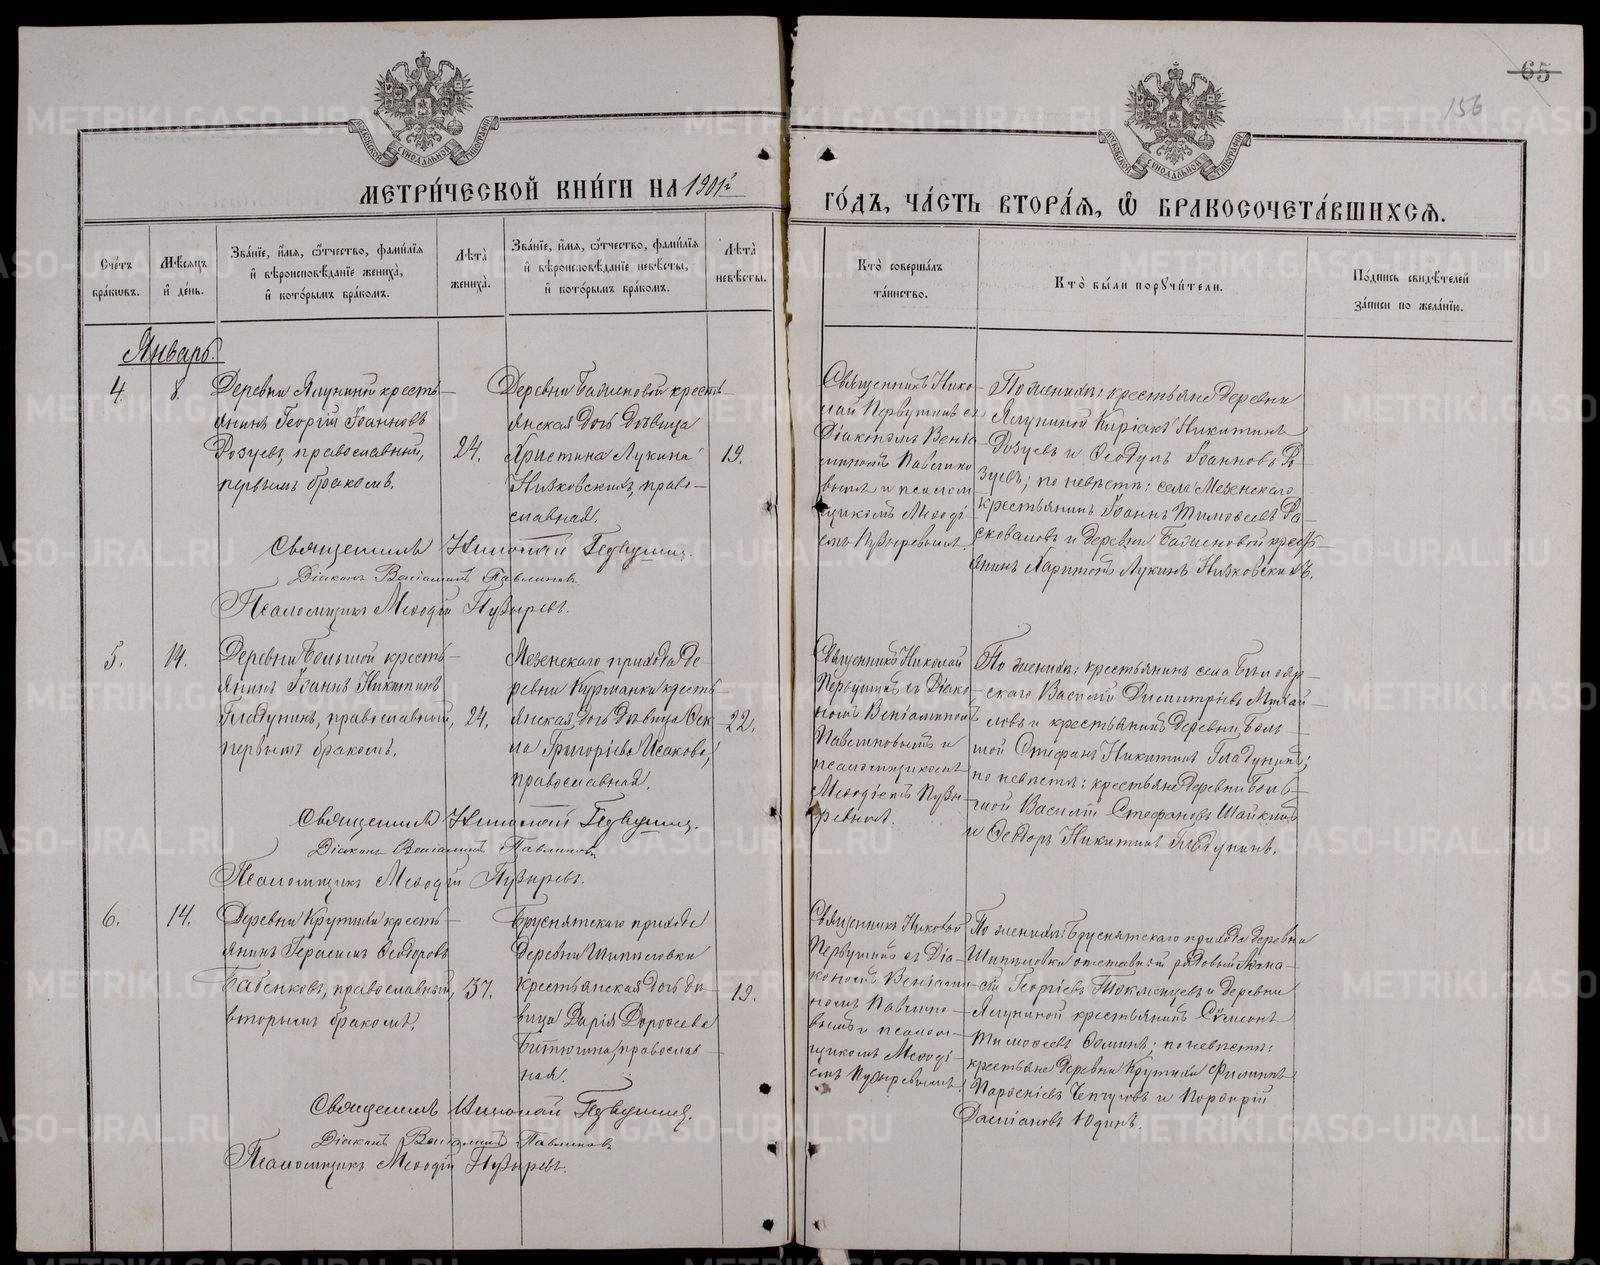 65
156
МОСКОВСКОЙ СѴНОДАЛЬНОЙ ТИПОГРАФІИ
МОСКОВСКОЙ СѴНОДАЛЬНОЙ ТИПОГРАФІИ
МЕТРИ́ЧЕСКОЙ КНИ́ГИ НА 1901й
ГО́ДЪ, ЧА́СТЬ ВТОРА́Ѧ, Ѽ БРАКОСОЧЕТА́ВШИХСѦ.
Сче́тъ бра́ковъ.
Мѣ́сѧцъ и҆ де́нь.
Зва́нїе, и҆́мѧ, ѻ҆́тчество, фами́лїѧ и҆ вѣроисповѣ́данїе жениха̀, и҆ кото́рымъ бра́комъ.
Лѣта̀ жениха̀.
Зва́нїе, и҆́мѧ, ѻ҆́тчество, фами́лїѧ и҆ вѣроисповѣ́данїе невѣ́сты, и҆ кото́рымъ бра́комъ.
Лѣта̀ невѣ́сты.
Кто̀ соверша́лъ та́инство.
Кто̀ бы́ли порꙋчи́тели.
По́дпись свидѣ́телей за́писи по жела́нїю.
Январь.
4.
8.
Деревни Ялуниной кресть-
янинъ Георгій Іоанновъ
Розуевъ, православный,
первымъ бракомъ.
24.
Деревни Баженовой кресть-
янская дочь дѣвица
Христина Лукина
Низковскихъ, право-
славная.
19.
Священникъ Нико-
лай Первушинъ съ
Діакономъ Веніа-
миномъ Павлино-
вымъ и псалом-
щикомъ Меѳоді-
емъ Пузыревымъ.
По женихѣ: крестьяне деревни
Ялуниной Киріакъ Никитинъ
Розуевъ и Ѳеодулъ Іоанновъ Ро-
зуевъ; по невѣстѣ: села Мезенскаго
крестьянинъ Іоаннъ Тимоѳеевъ Ра-
сковаловъ и деревни Баженовой кресть-
янинъ Харитонъ Лукинъ Низковскихъ.
Священникъ Николай Первушинъ.
Діаконъ Веніаминъ Павлиновъ
Псаломщикъ Меѳодій Пузыревъ.
5.
14.
Деревни Большой кресть-
янинъ Іоаннъ Никитинъ
Гладунинъ, православный,
первымъ бракомъ.
24.
Мезенскаго прихода де-
ревни Курманки кресть-
янская дочь дѣвица Ѳек-
ла Григоріева Исакова,
православная.
22.
Священникъ Николай
Первушинъ съ Діако-
номъ Веніаминомъ
Павлиновымъ и
псаломщикомъ
Меѳодіемъ Пузы-
ревымъ.
По женихѣ: крестьянинъ села Бѣлояр-
скаго Василій Димитріевъ Михай-
ловъ и крестьянинъ деревни Боль-
шой Стефанъ Никитинъ Гладунинъ;
по невѣстѣ: крестьяне деревни Боль-
шой Василій Стефановъ Шайкинъ
и Ѳеодоръ Никитинъ Гладунинъ.
Священникъ Николай Первушинъ.
Діаконъ Веніаминъ Павлиновъ
Псаломщикъ Меѳодій Пузыревъ.
6.
14.
Деревни Крутихи кресть-
янинъ Герасимъ Ѳеодоровъ
Бабенковъ, православный,
вторымъ бракомъ.
37.
Бруснятскаго прихода
деревни Шипиловки
крестьянская дочь дѣ-
вица Дарія Дороѳеева
Битюгина, православ-
ная.
19.
Священникъ Николай
Первушинъ съ Діа-
кономъ Веніами-
номъ Павлино-
вымъ и псалом-
щикомъ Меѳоді-
емъ Пузыревымъ.
По женихѣ: Бруснятскаго прихода деревни
Шипиловки отставной рядовой Аѳана-
сій Георгіевъ Токманцевъ и деревни
Ялуниной крестьянинъ Сѵмеонъ
Тимоѳеевъ Ѳоминъ; по невѣстѣ:
крестьяне деревни Крутихи Филиппъ
Парѳеніевъ Чепчуговъ и Порфирій
Даміановъ Юдинъ.
Священникъ Николай Первушинъ.
Діаконъ Веніаминъ Павлиновъ
Псаломщикъ Меѳодій Пузыревъ.
METRIKI.GASO-URAL.RU